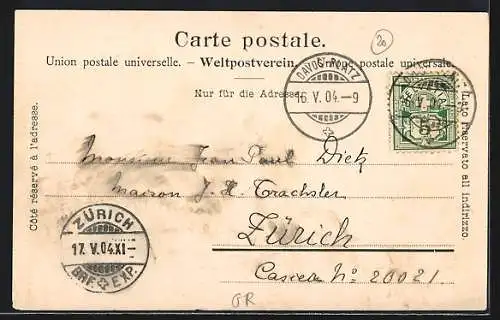 20
Carte postale.
Union postale universelle. – Weltpostverein. – Unione postale universale.
Nur für die Adresse.
DAVOS-PLATZ
16. V. 04.–9
5
Côté réservé à l'adresse.
Lato riservato all indirizzo.
Monsieur Jean Paul Dietz
maison J. H. Trachsler
Zürich
Casella No 20021.
ZÜRICH
17. V. 04. XI–
BRF. EXP.
GR